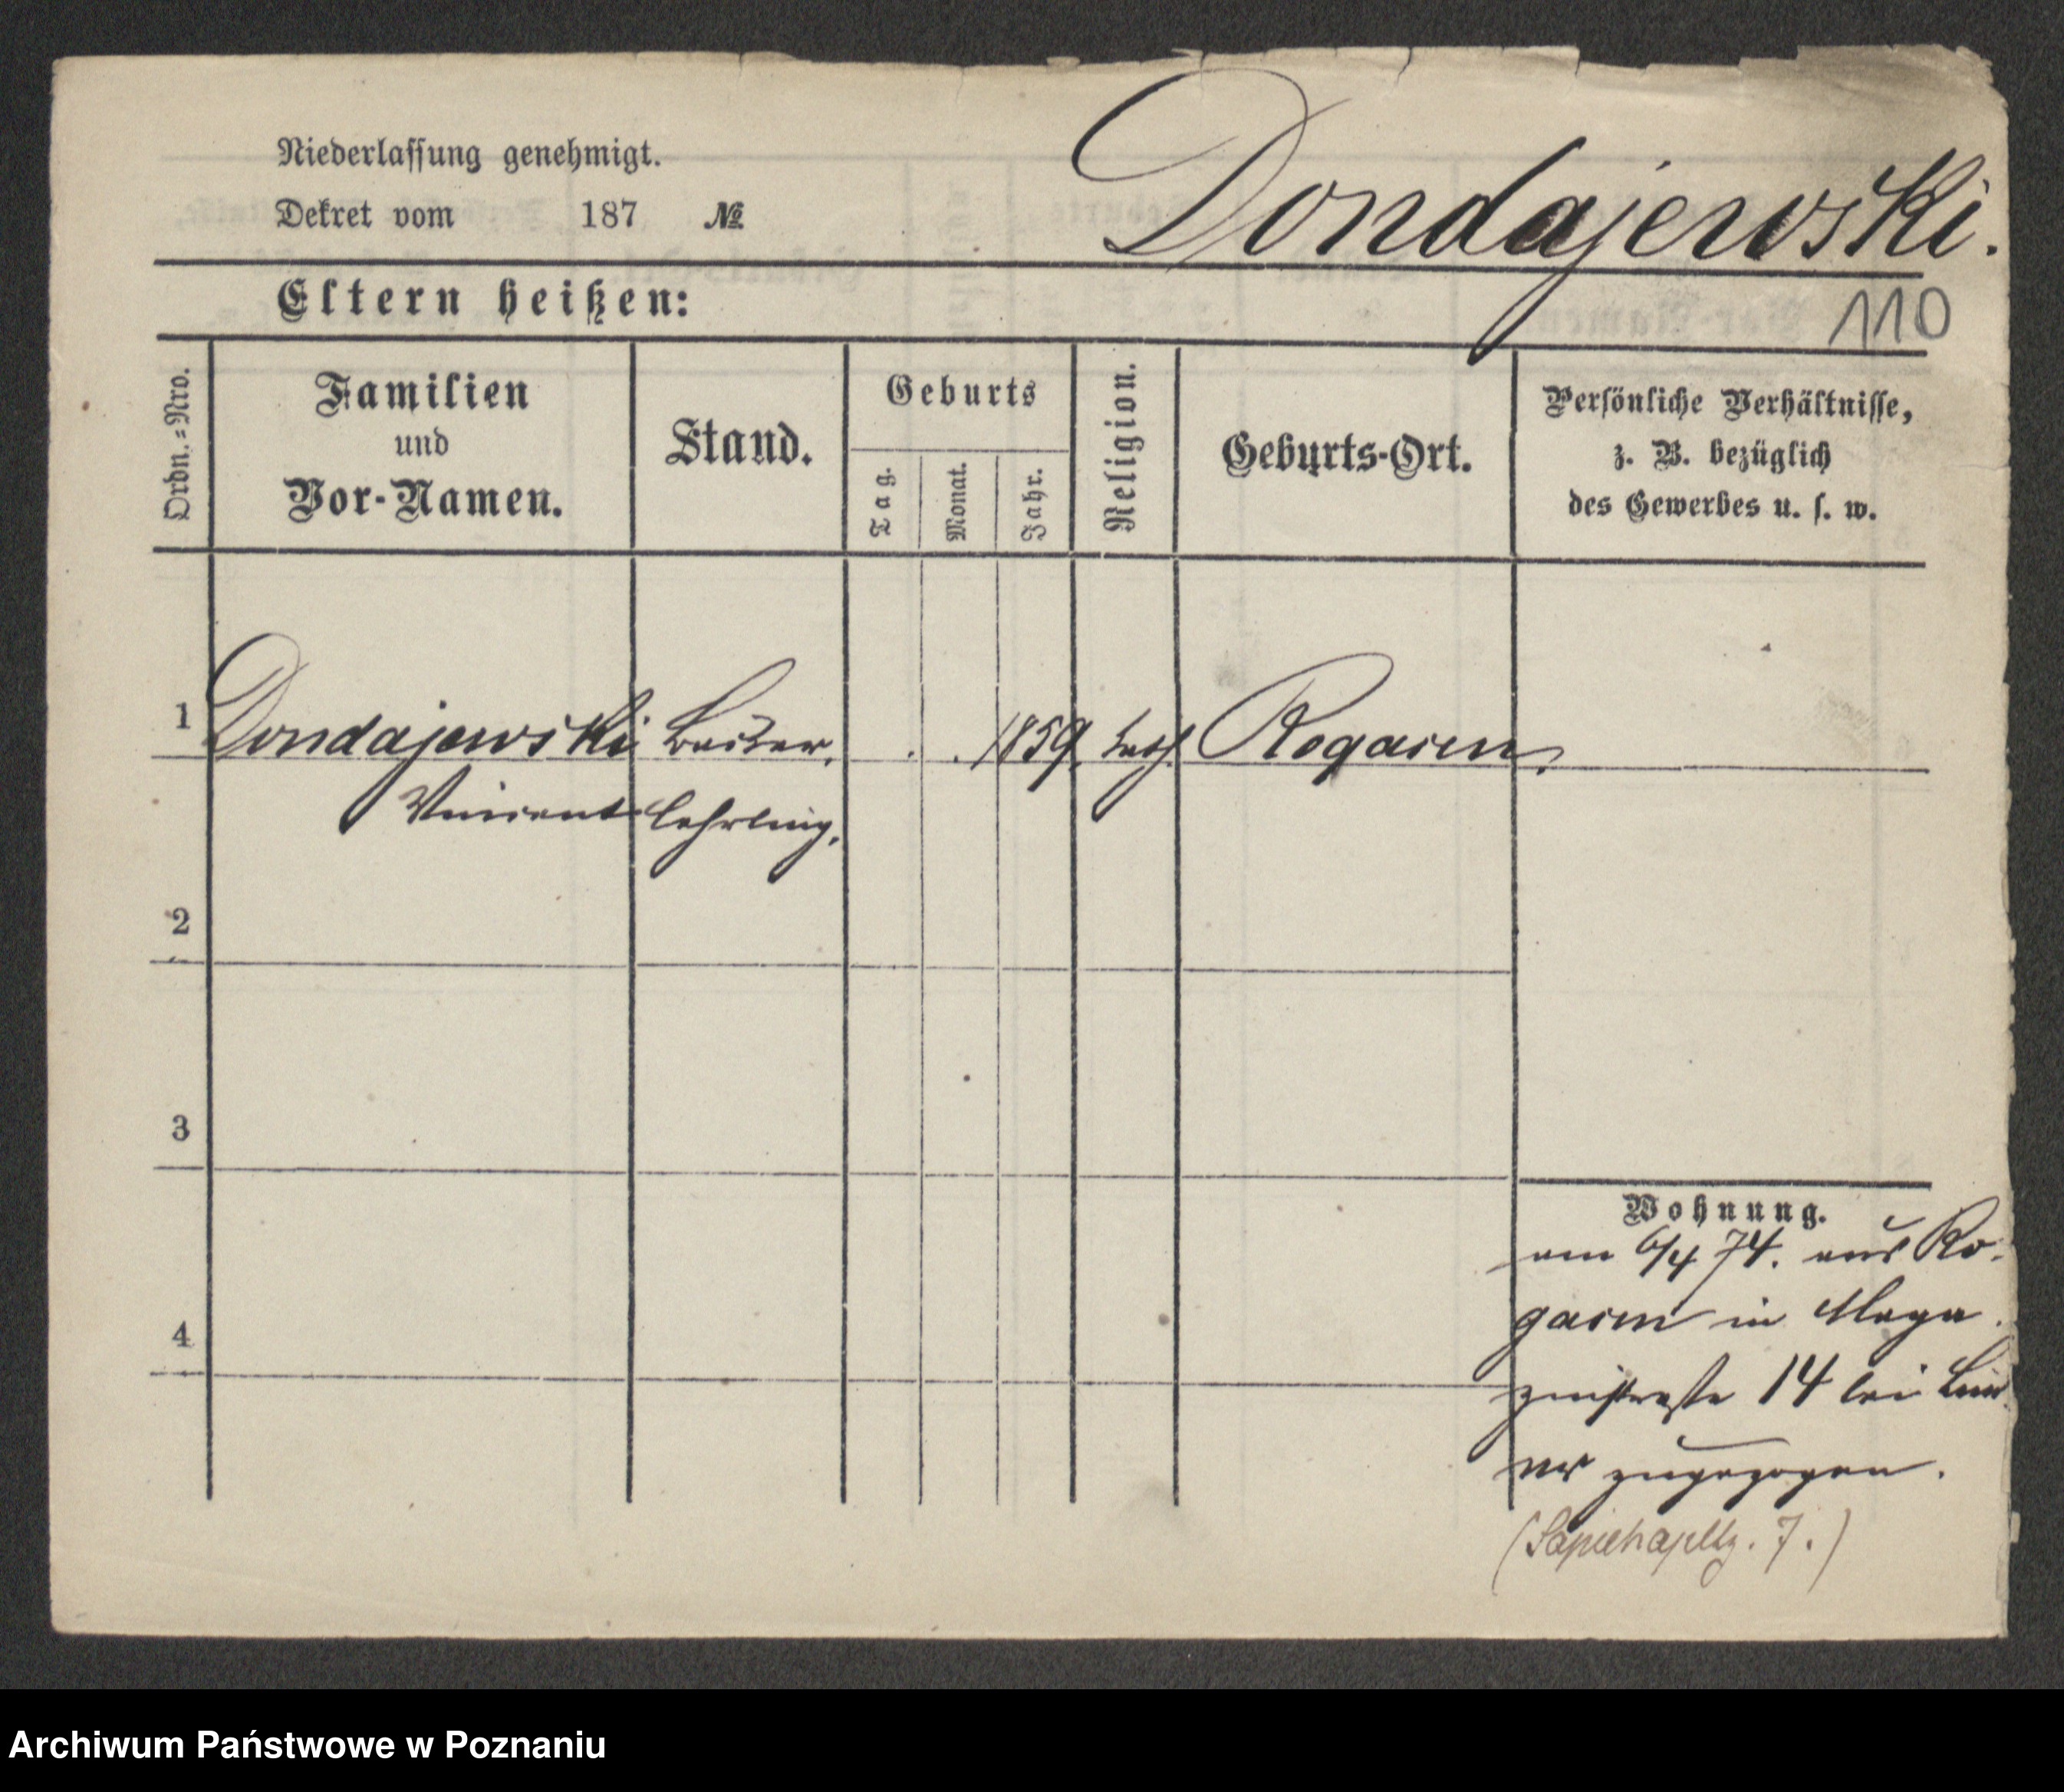 Niederlassung genehmigt.
Dekret vom 187 №
Dondajewski.
Eltern heißen:
110
Ordn.=Nro.
Familien
und
Vor-Namen.
Stand.
Geburts
Tag.
Monat.
Jahr.
Religion.
Geburts-Ort.
Persönliche Verhältnisse,
z. B. bezüglich
des Gewerbes u. s. w.
1 Dondajewski Bäcker, . . 1859. kath. Rogasen.
Vincent lehrling.
2
3
4
Wohnung.
am 6/4 74. aus Ro-
gasen in Maga
zinstraße 14 bei
zugezogen.
(Sapiehapltz. 7.)
Archiwum Państwowe w Poznaniu